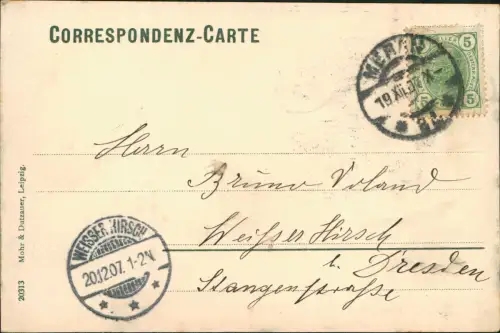 CORRESPONDENZ-CARTE
5 5
MERAN
19 XII 07
Herrn
Bruno Voland
Weißer Hirsch
b. Dresden
Stangenstraße
WEISSER HIRSCH
20.12.07. 1-2N.
20313 Mohr & Dutzauer, Leipzig.